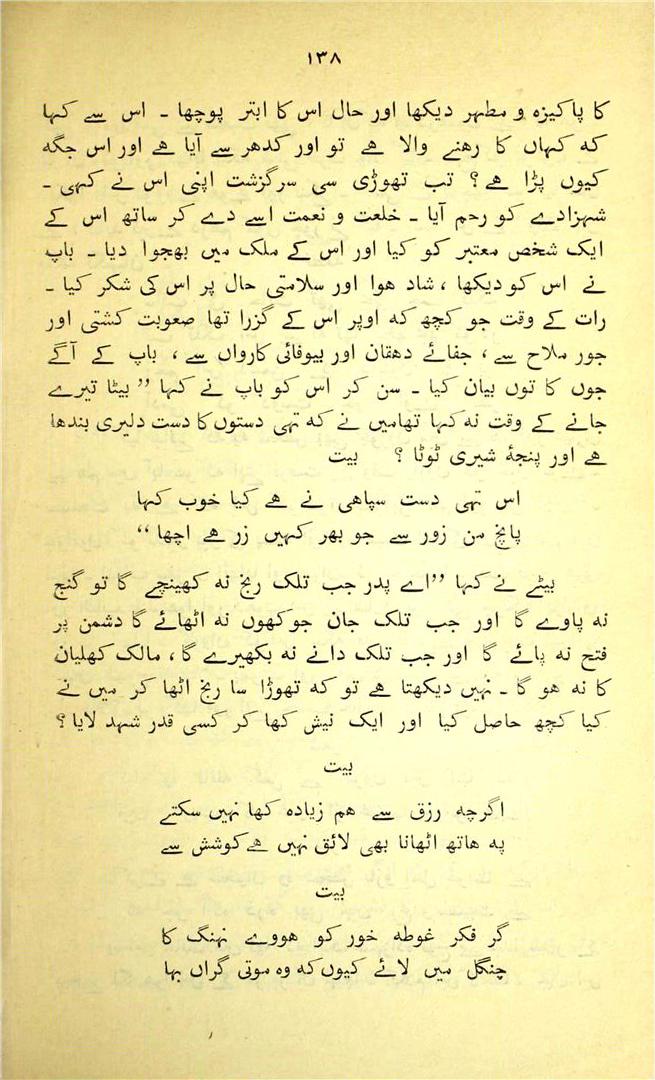 ۱۳۸
کا پاکیزہ و مطہر دیکھا اور حال اس کا ابتر پوچھا ـ اس سے کہا
کہ کہاں کا رھنے والا ھے تو اور کدھر سے آیا ھے اور اس جگہ
کیوں پڑا ھے ؟ تب تھوڑی سی سرگزشت اپنی اس نے کہی ـ
شہزادے کو رحم آیا ـ خلعت و نعمت اسے دے کر ساتھ اس کے
ایک شخص معتبر کو کیا اور اس کے ملک میں بھجوا دیا ـ باپ
نے اس کو دیکھا ، شاد ھوا اور سلامتی حال پر اس کی شکر کیا ـ
رات کے وقت جو کچھ کہ اوپر اس کے گزرا تھا صعوبت کشتی اور
جور ملاح سے ، جفائے دھقان اور بیوفائی کارواں سے ، باپ کے آگے
جوں کا توں بیان کیا ـ سن کر اس کو باپ نے کہا ”بیٹا تیرے
جانے کے وقت نہ کہا تھامیں نے کہ تہی دستوں کا دست دلیری بندھا
ھے اور پنجۂ شیری ٹوٹا ؟ بیت
اس تہی دست سپاھی نے ھے کیا خوب کہا
پانچ من زور سے جو بھر کہیں زر ھے اچھا“
بیٹے نے کہا ”اے پدر جب تلک رنج نہ کھینچے گا تو گنج
نہ پاوے گا اور جب تلک جان جوکھوں نہ اٹھائے گا دشمن پر
فتح نہ پائے گا اور جب تلک دانے نہ بکھیرے گا ، مالک کھلیان
کا نہ ھو گا ـ نہیں دیکھتا ھے تو کہ تھوڑا سا رنج اٹھا کر میں نے
کیا کچھ حاصل کیا اور ایک نیش کھا کر کسی قدر شہد لایا ؟
بیت
اگرچہ رزق سے ھم زیادہ کھا نہیں سکتے
پہ ھاتھ اٹھانا بھی لائق نہیں ھے کوشش سے
بیت
گر فکر غوطہ خور کو ھووے نہنگ کا
چنگل میں لائے کیوں کہ وہ موتی گراں بہا